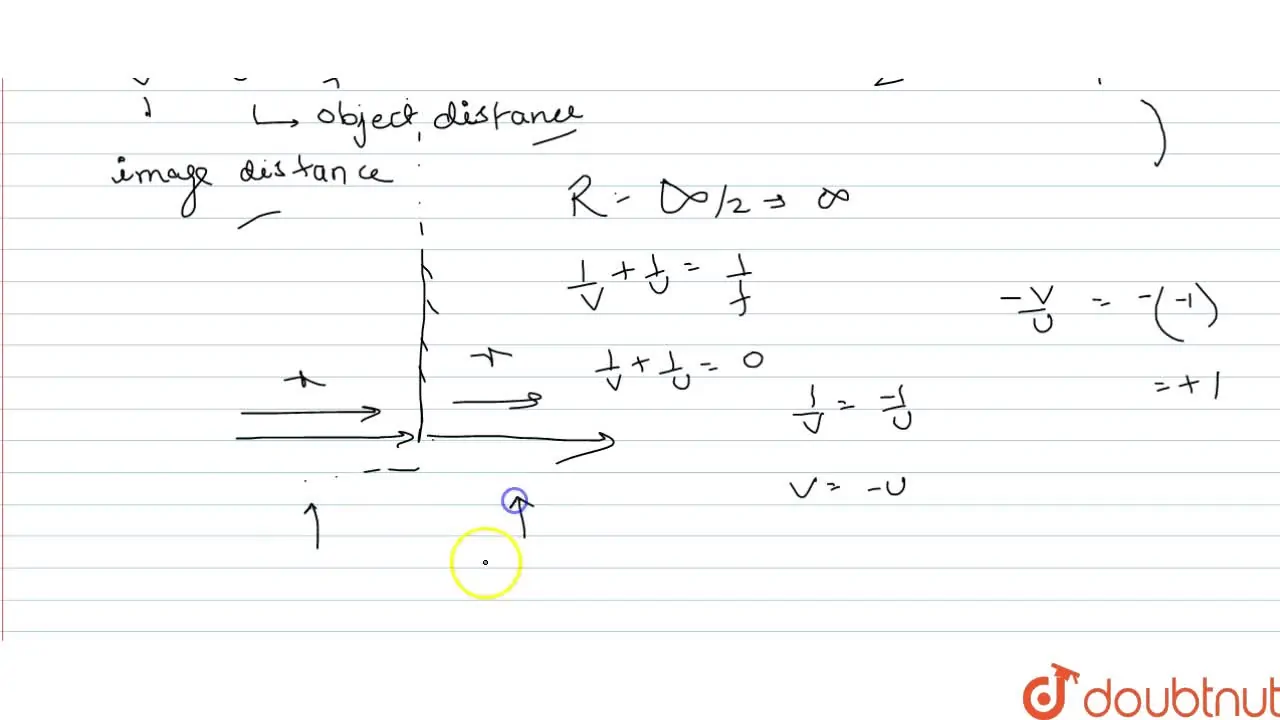 ↳ object distance
image distance
R = ∞/2 → ∞
1/v + 1/u = 1/f
1/v + 1/u = 0
1/v = -1/u
v = -u
-v/u = -(-1)
= +1
x
x
doubtnut